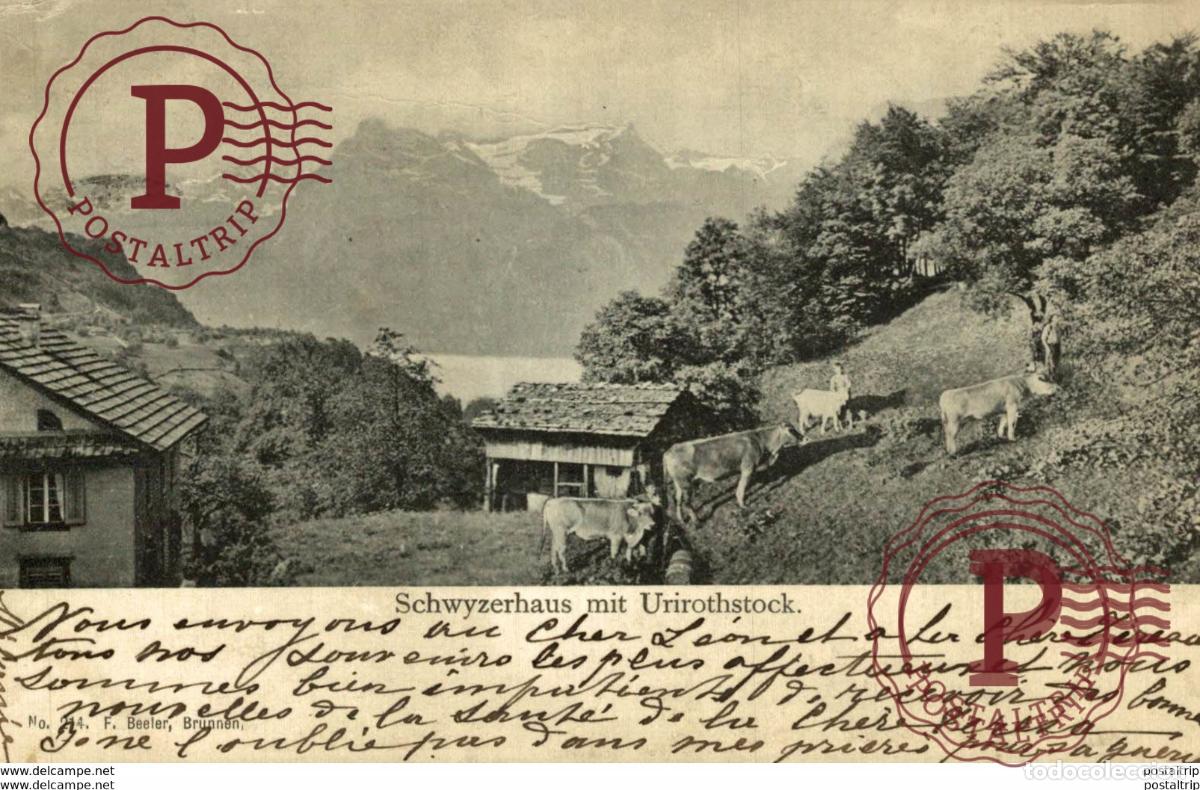 P
POSTALTRIP
Schwyzerhaus mit Urirothstock.
Nous envoyons au Cher Léon et a la chère
tous nos souvenirs les plus affectueux et nous
sommes bien impatients de recevoir des bonnes
nouvelles de la santé de la chère
No. 214. F. Beeler, Brunnen.
Je ne l'oublie pas dans mes prières pour sa guéri
P
POSTALTRIP
todocoleccion
www.delcampe.net
postaltrip
www.delcampe.net
postaltrip